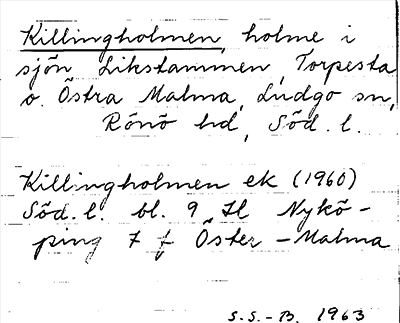 Killingholmen, holme i
sjön Likstammen, Torpesta
o. Östra Malma, Ludgo sn,
Rönö hd, Söd. l.
Killingholmen ek (1960)
Söd. l. bl. 9 H Nykö-
ping 7 f Öster-Malma
S.S.-B. 1963